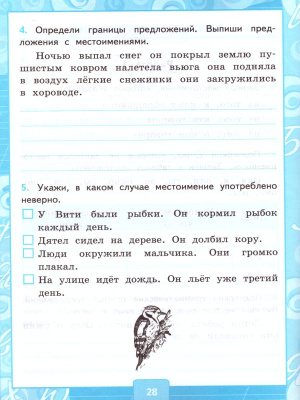 4. Определи границы предложений. Выпиши пред-
ложения с местоимениями.
Ночью выпал снег он покрыл землю пу-
шистым ковром налетела вьюга она подняла
в воздух лёгкие снежинки они закружились
в хороводе.
5. Укажи, в каком случае местоимение употреблено
неверно.
У Вити были рыбки. Он кормил рыбок
каждый день.
Дятел сидел на дереве. Он долбил кору.
Люди окружили мальчика. Они громко
плакал.
На улице идёт дождь. Он льёт уже третий
день.
28